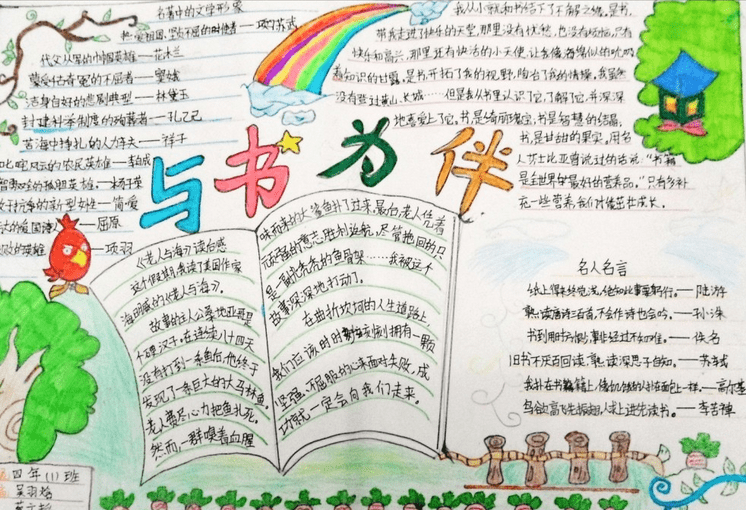 名著中的文学形象
热爱祖国,坚贞不屈的时传者——项苏武
代父从军的巾帼英雄——花木兰
蒙受估奇冤的不屈者——窦娥
洁身自好的悲剧典型——林黛玉
封建科学制度的殉葬者——孔乙己
苦海中挣扎的人力车夫——祥子
叱咤风云的农民英雄——李自成
的孤胆英雄——杨子荣
抗争的新型女性——简爱
的爱国诗人——屈原
败的英雄——项羽
我从小就和书结下了不解之缘,是书,
带我走进了快乐的天堂,那里没有忧愁,也没有烦恼,只有
快乐和高兴,那里还有快活的小天使,让我像海绵似的吮吸
着知识的甘露,是书开拓了我的视野,陶冶了我的情操,我虽然
没有登过黄山、长城……但是我从书里认识了它,了解了它,并深深
地喜爱上了它。书是绮丽瑰宝,书是智慧的结晶。
书,是甘甜的果实,用名
人莎士比亚曾说过的话说:“书籍
是全世界最好的营养品。”只有多补
充一些营养,我们才像茁壮成长。
与书为伴
《老人与海》读后感
这个假期,我读了美国作家
海明威的《老人与海》。
故事的主人公桑地亚哥是
个硬汉子,在连续八十四天
没有打到一条鱼后,他终于
发现了一条巨大的大马林鱼。
老人费尽心力把鱼扎死。
然而,一群嗅着血腥
味而来的大鲨鱼扑了过来,最后,老人凭着
顽强的意志胜利返航,尽管拖回的只
是一副光秃秃的鱼骨架……我被这个
故事深深地打动了。
在曲折坎坷的人生道路上,
我们应该时时刻刻拥有一颗
坚强、不屈服的心来面对失败,成
功就一定会向我们走来。
名人名言
纸上得来终觉浅,绝知此事要躬行。——陆游
熟读唐诗三百首,不会作诗也会吟。——孙洙
书到用时方恨少,事非经过不知难。——佚名
旧书不厌百回读,熟读深思子自知。——苏轼
我扑在书籍上,像饥饿的人扑在面包上一样。——高尔基
鸟欲高飞先振翅,人求上进先读书。——李苦禅
四年(1)班
吴羽